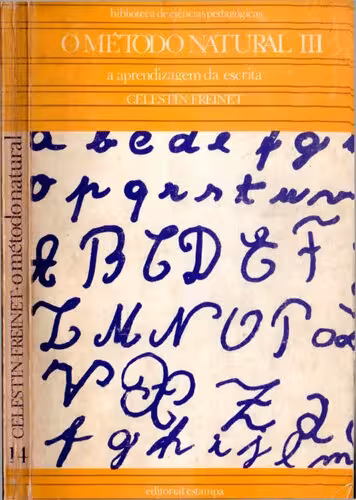 biblioteca de ciências pedagógicas
O MÉTODO NATURAL III
a aprendizagem da escrita
CELESTIN FREINET
a b c d e f g
o p q r s t u v
A B C D E F
L M N O P
V X Z
f g h i j l m
editorial estampa
CELESTIN FREINET · o método natural
14